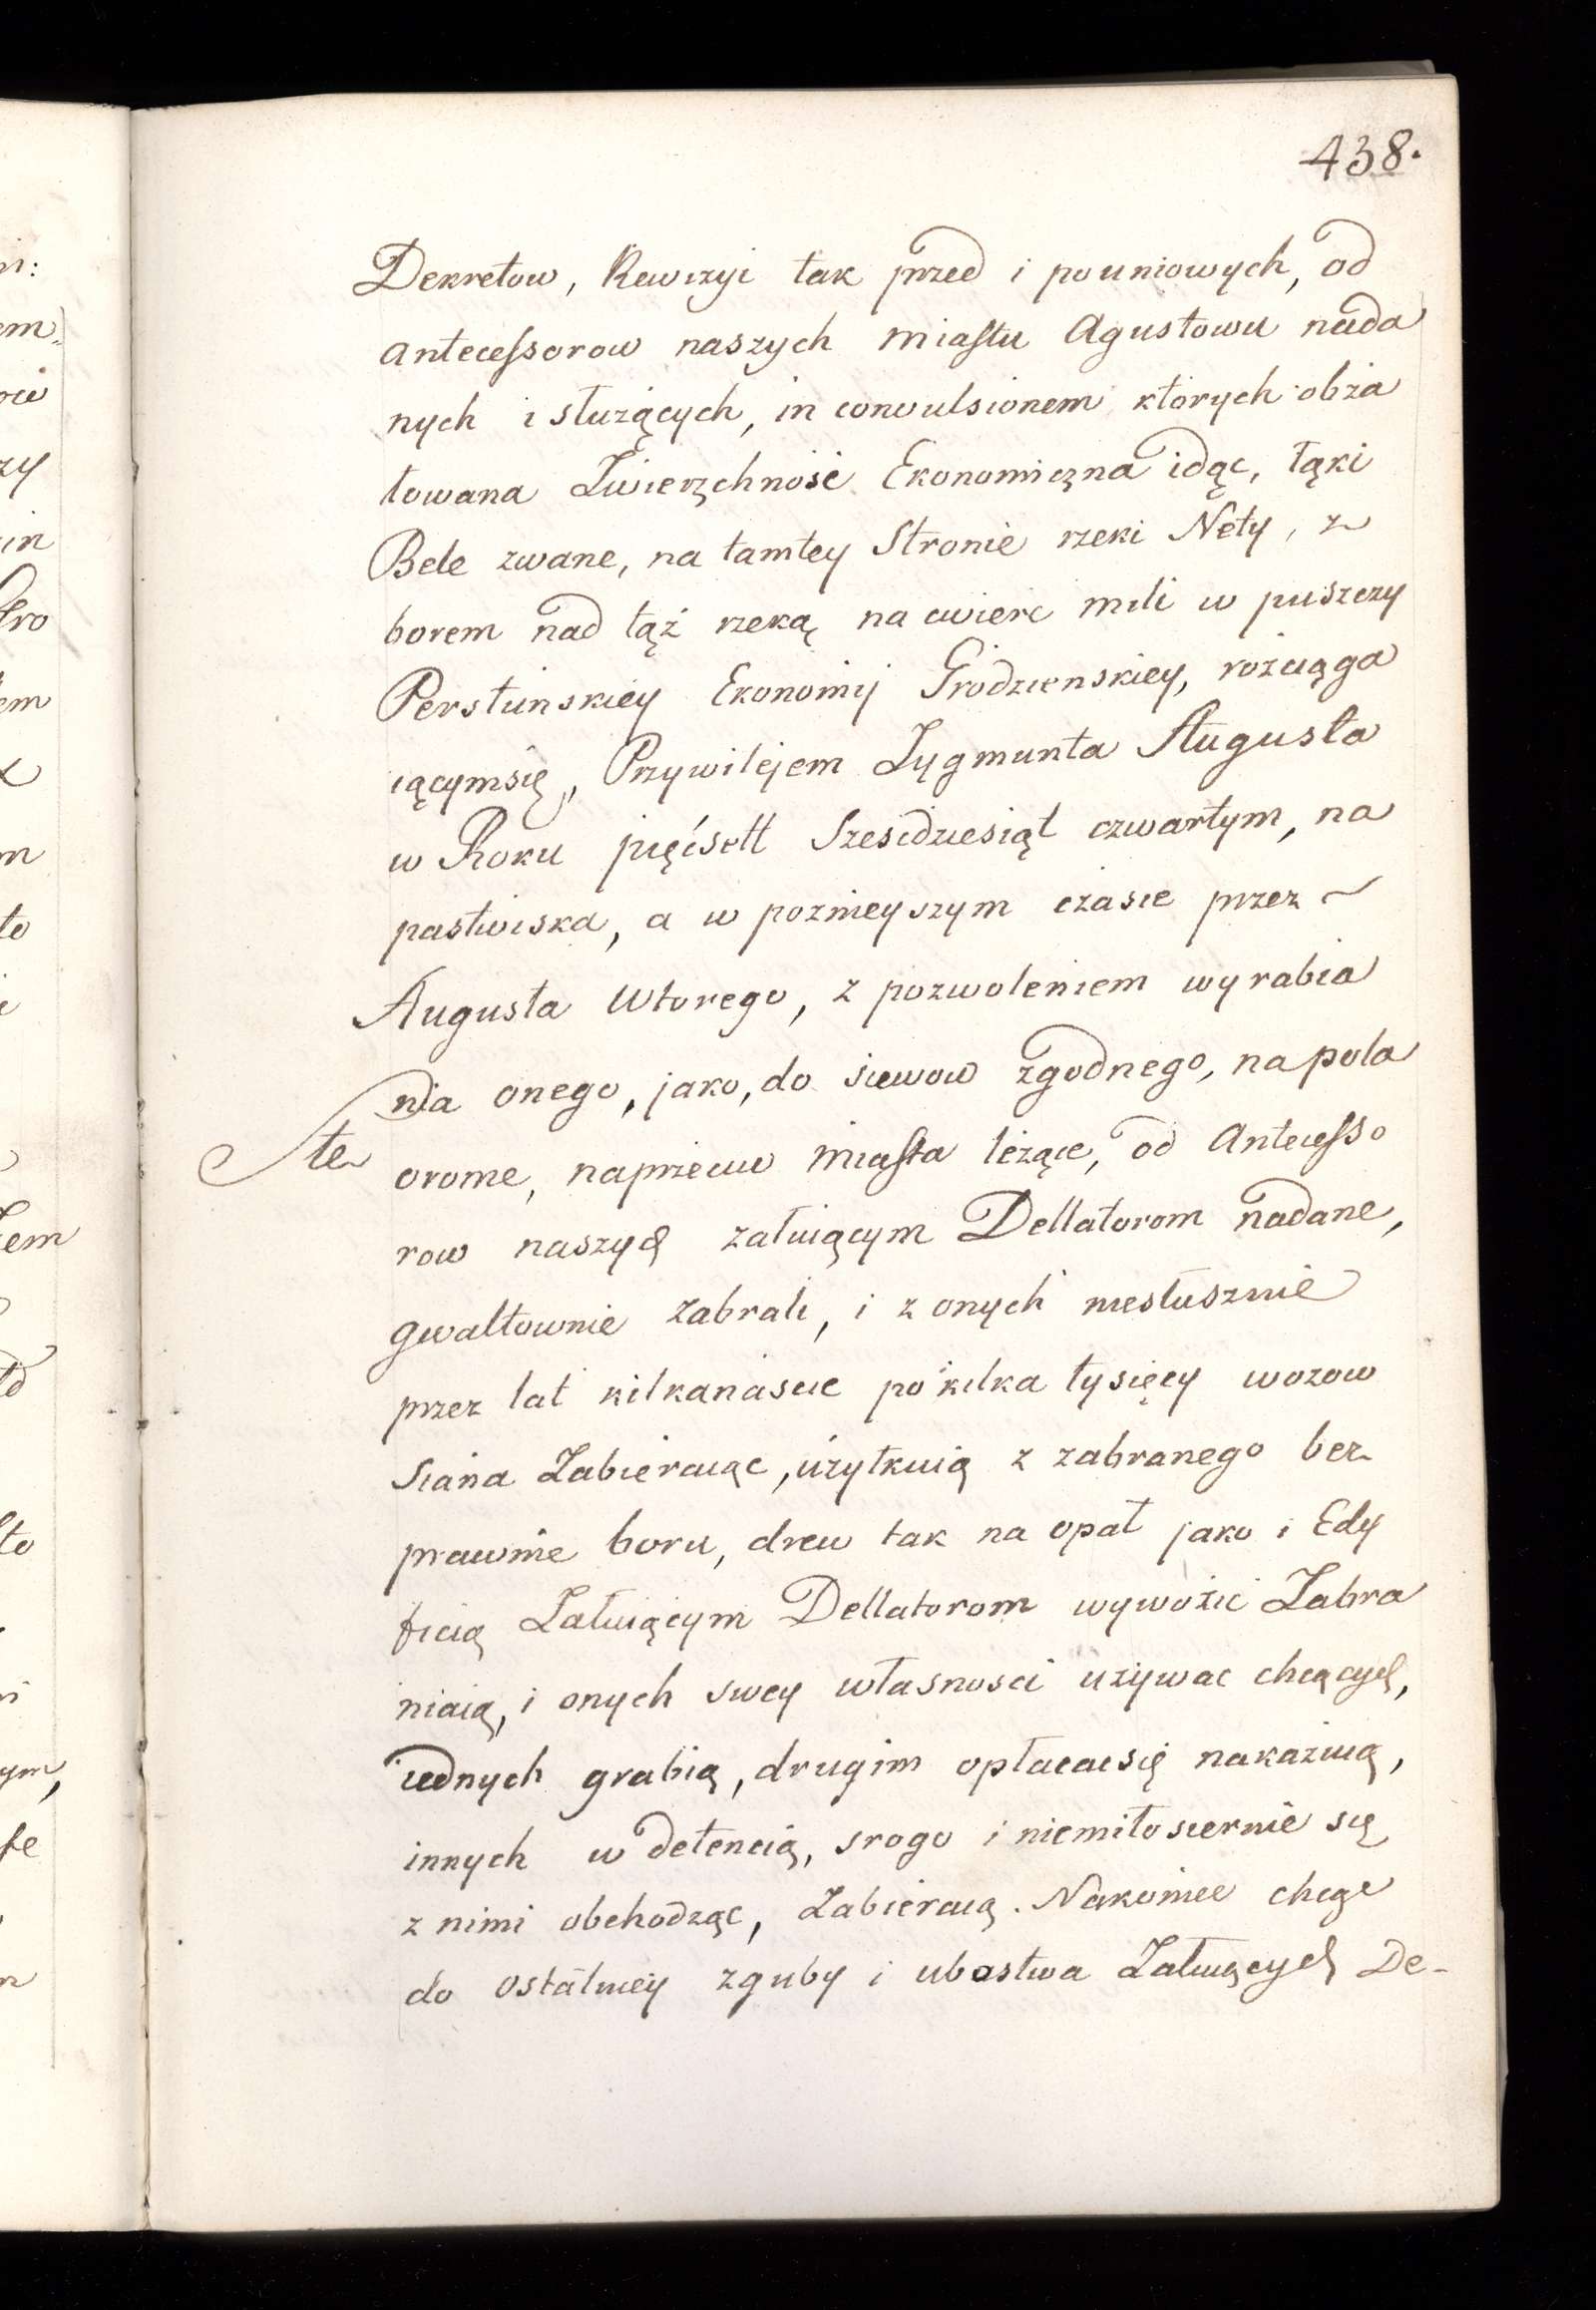 438.
Dekretow, Rewizyi tak przed i pouniowych, od
Antecessorow naszych Miastu Agustowu nada
nych i służących, in convulsionem ktorych obża
łowana Zwierzchność Ekonomiczna idąc, łąki
Bele zwane, na tamtey Stronie rzeki Nety, z
borem nad tąż rzeką na cwierc mili w puszczy
Perstunskiey Ekonomij Grodzienskiey, rożciąga
iącymsię, Przywilejem Zygmunta Augusta
w Roku pięćsett Szescdziesiąt czwartym, na
pastwiska, a w pozniejszym czasie przez
Augusta Wtorego, z pozwoleniem wyrabia
nia onego, jako, do siewow zgodnego, na pola
te
orome, naprzeciw Miasta leżące, od Antecesso
row naszych załuiącym Dellatorom nadane,
gwałtownie zabrali, i z onych niesłusznie
przez lat kilkanascie po kilka tysięcy wozow
Siana Zabieraiąc, użytkuią z zabranego bez
prawnie boru, drew tak na opał jako i Edy
ficią Załuiącym Dellatorom wywozić Zabra
niaią, i onych swey własnosci używac chcących,
iednych grabią, drugim opłacacsię nakazuią,
innych w detencią, srogo i niemiłosiernie się
z nimi obchodząc, Zabieraią. Nakoniec chcąc
do ostatniey zguby i ubostwa Załuiących De-